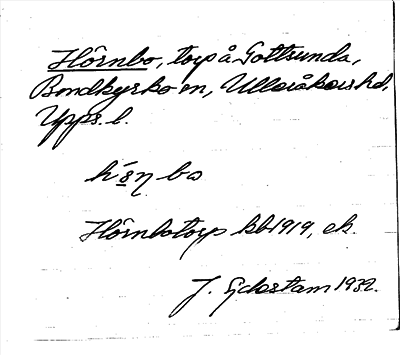 Hörnbo, torp å Gottsunda,
Bondkyrko sn, Ulleråkers hd,
Upps. l.
bo
Hörnbotorp kb 1919, ek.
J. 1932.